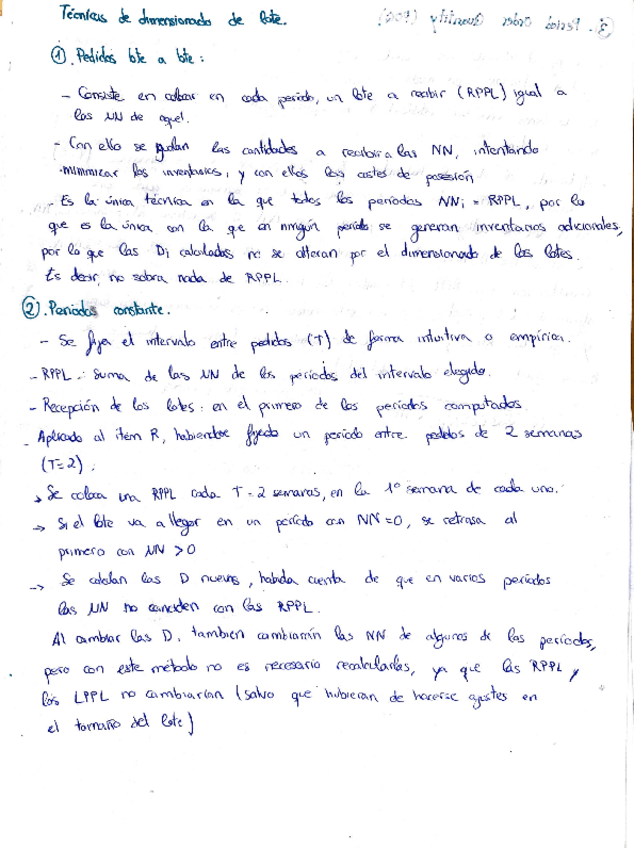 Técnicas de dimensionado de lote.
① Pedidos lote a lote:
- Consiste en colocar en cada periodo, un lote a recibir (RPPL) igual a
las NN de aquel.
- Con ello se igualan las cantidades a recibir a las NN, intentando
minimizar los inventarios, y con ellos los costes de posesión
- Es la única técnica en la que todos los periodos NNi = RPPL, por lo
que es la única con la que en ningún periodo se generan inventarios adicionales,
por lo que las Di calculados no se alteran por el dimensionado de los lotes.
Es decir, no sobra nada de RPPL.
②. Periodos constante.
- Se fija el intervalo entre pedidos (T) de forma intuitiva o empírica.
- RPPL.: Suma de las NN de los periodos del intervalo elegido.
- Recepción de los lotes: en el primero de los periodos computados
- Aplicado al item R, habiendose fijado un periodo entre pedidos de 2 semanas
(T=2).
→ Se coloca una RPPL cada T=2 semanas, en la 1º semana de cada uno.
→ Si el lote va a llegar en un período con NN=0, se retrasa al
primero con NN >0
→ Se calculan las D nuevas, habida cuenta de que en varios periodos
las NN no coinciden con las RPPL.
Al cambiar las D, tambien cambiarían las NN de algunos de los periodos,
pero con este método no es necesario recalcularlas, ya que las RPPL y
los LPPL no cambiarían (salvo que hubieran de hacerse ajustes en
el tamaño del lote)
3. Period Order Quantity (POQ).